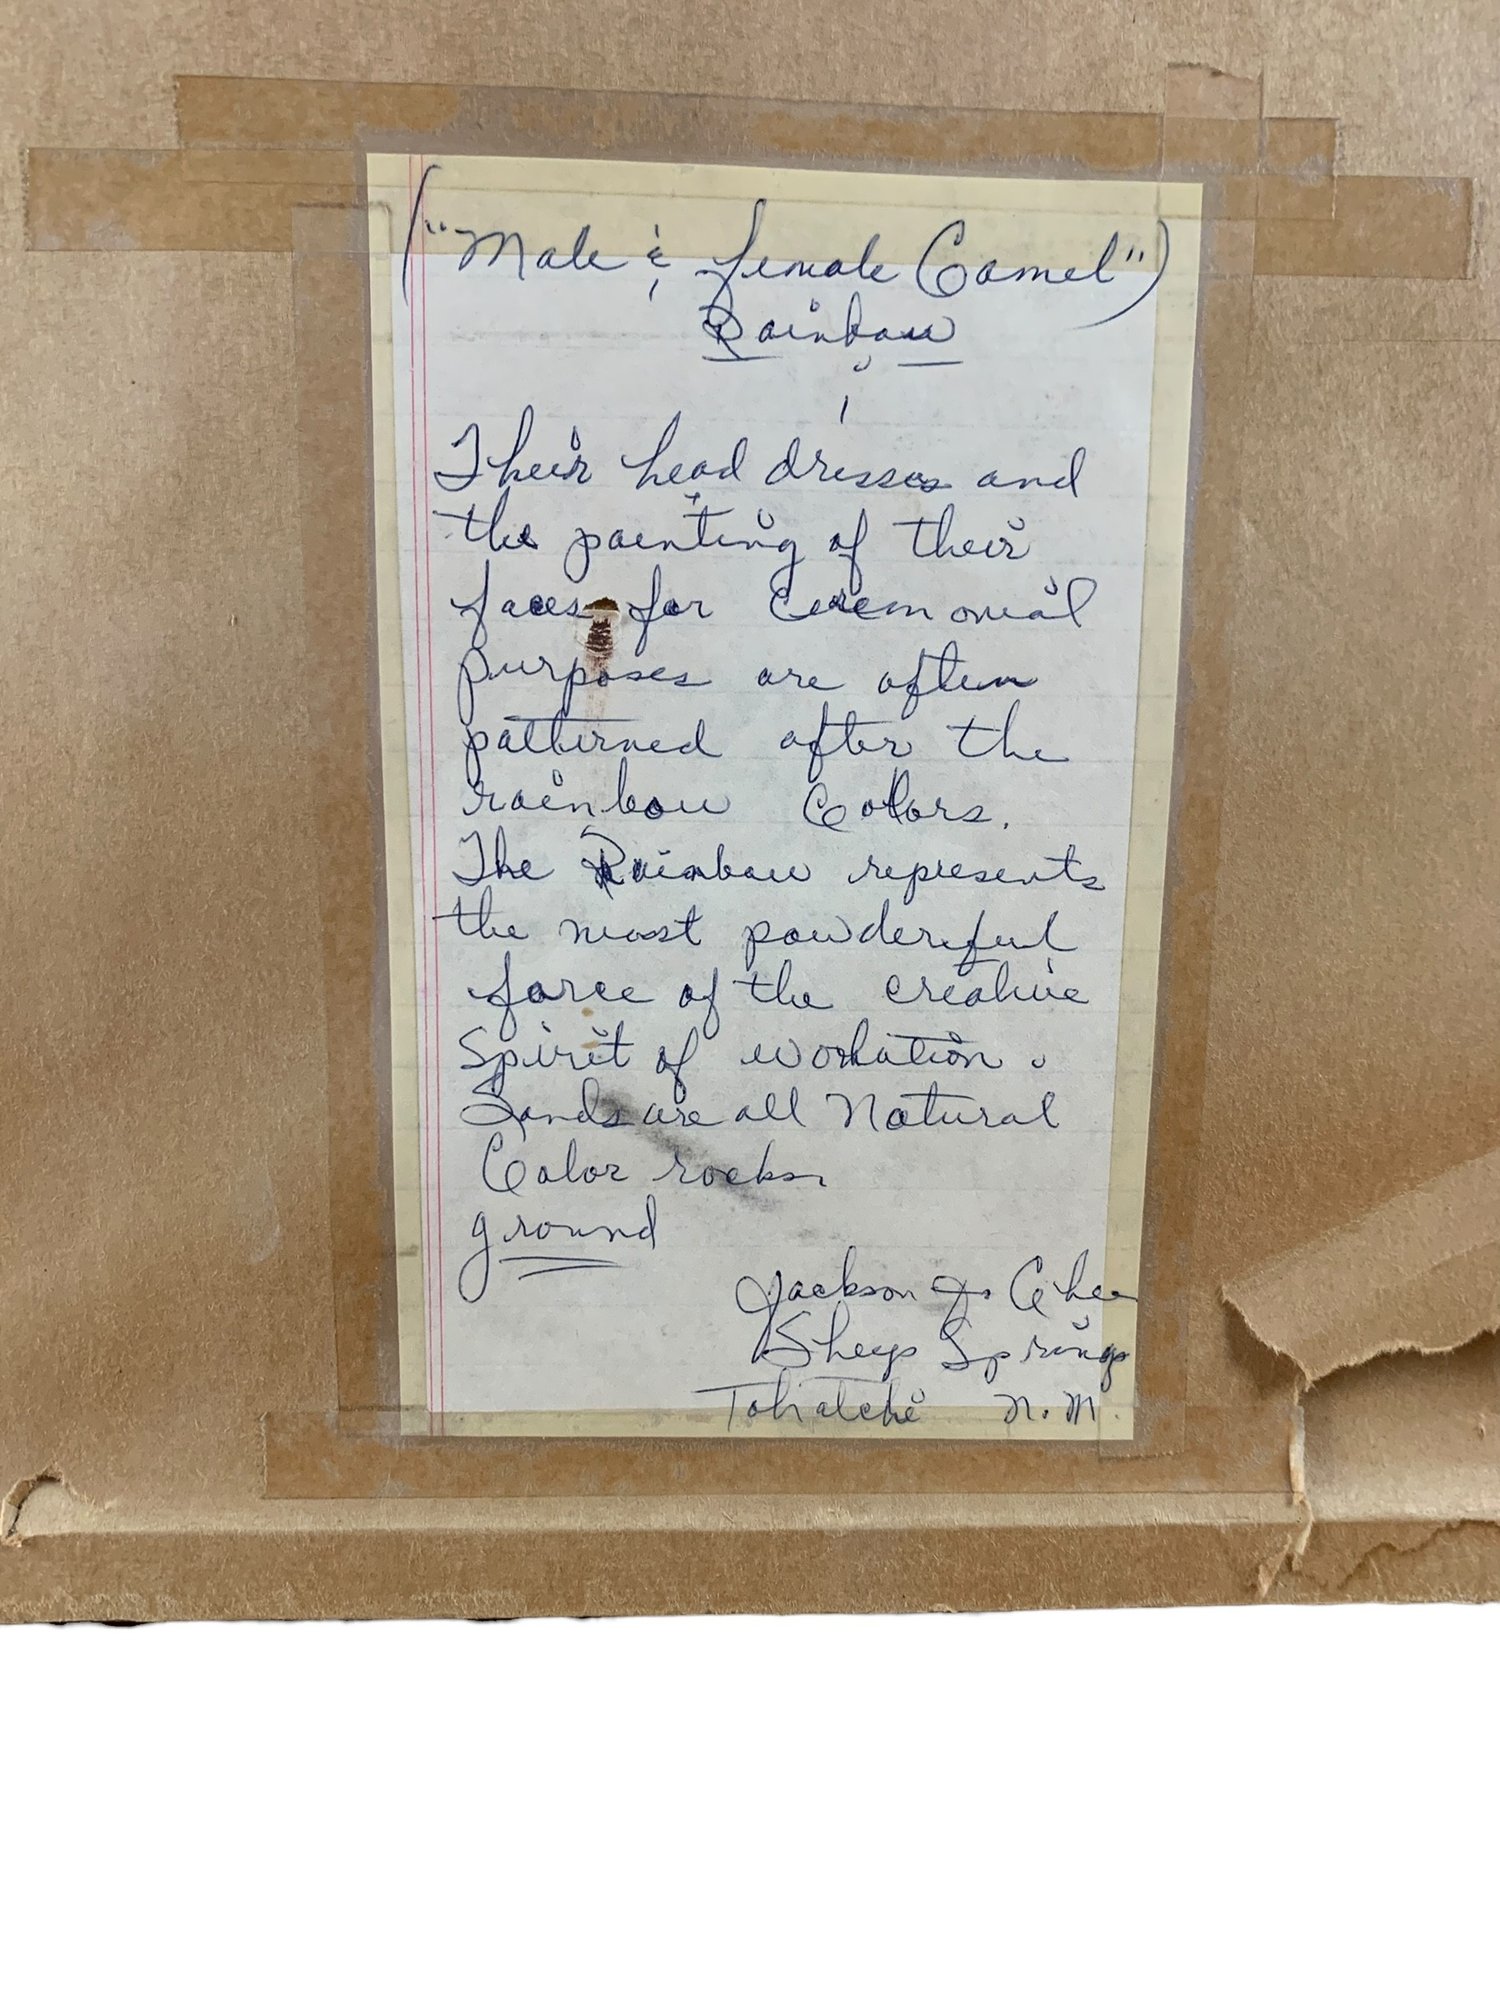 ("Male & female Camel")
Rainbow
Their head dresses and
the painting of their
faces for ceremonial
purposes are often
patterned after the
rainbow Colors.
The Rainbow represents
the most powderful
force of the creative
Spirit of
Sands are all Natural
Color rocks
ground
Jackson Ghee
Sheep Springs
Tohatchi N.M.